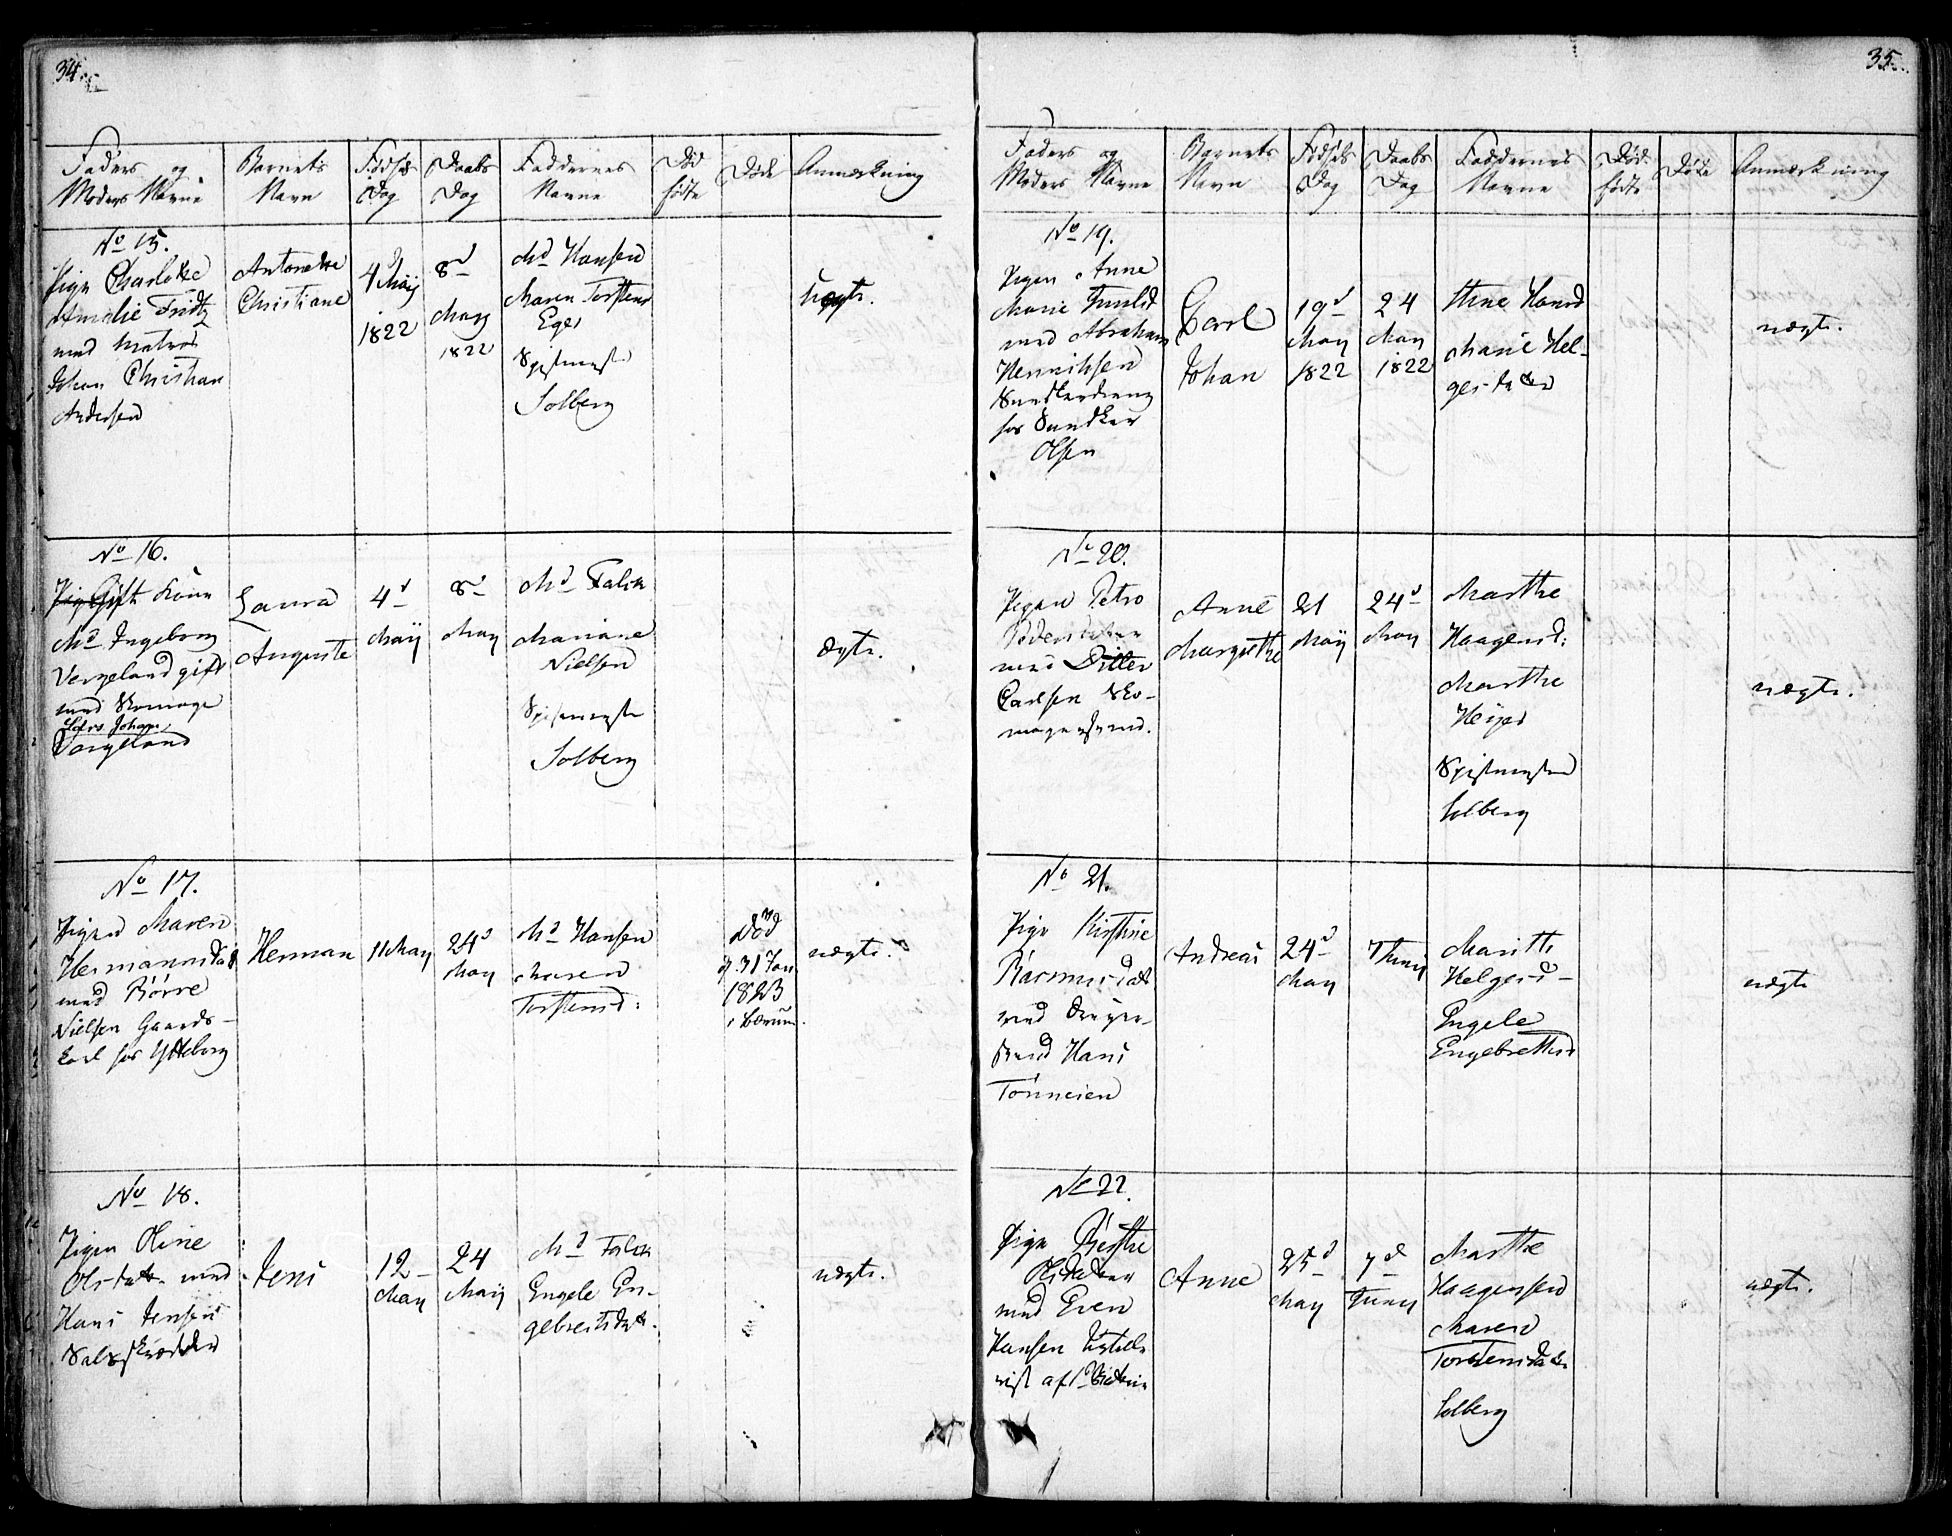 34.
Faders og
Moders Navne
Barnets
Navn
Fødsels
Dag
Daabs
Dag
Faddernes
Navne
Død
fødte
Døde
Anmærkning
No 15.
Pigen Charlotte
Amalie Fridtz
med Matros
Johan Christian
Andersen
Antonette
Christiane
4d Maij
1822
8d
May
1822
Md Hansen
Maren Torstens
Eger
Spisemester
Solberg
uægte.
No 16.
Kone
Md Ingeborg
Vergeland gift
med Skomager
Johan
Vergeland
Laura
Auguste
4d
Maij
8d
May
Md Falck
Mariane
Nielsen
Spisemester
Solberg
Ægte.
No 17.
Pigen Maren
Hermannsdat
med Børre
Nielsen Gaards-
karl hos Ytteborg
Herman
11 May
24d
May
Md Hansen
Maren
Torstensd:
Død
d. 31 Jan
1823
i Bærum.
uægte.
No 18.
Pigen Oline
Olsdatr med
Hans Jensen
Jens
12
May
24
Maij
Md Falck
Engele En-
gebretsdatr.
uægte.
35.
Faders og
Moders Navne
Barnets
Navn
Fødsels
Dag
Daabs
Dag
Faddernes
Navne
Død
fødte
Døde
Anmærkning
No 19.
Pigen Anne
Marie
med Abraham
Henriksen
hos
Olsen
Carl
Johan
19d
May
1822
24
May
1822
Stine Hansd
Marie Hel-
gesdatter
uægte.
No 20.
Pigen Petro
Pedersdatter
med Ditlev
Carlsen Sko-
magersvend.
Anne
Margrethe
21
Maij
24d
May
Marthe
Haagensd:
Marthe
Spisemester
Solberg
uægte.
No 21.
Pige Kirstine
Rasmusdatr
med
svend Hans
Tønnesen
Andreas
24d
May
7 Junij
Marithe
Helgesd-
Engele
Engebrettsd
uægte
No 22.
Pige Berthe
Olsdatter
med Even
Hansen
Anne
25d
May
7d
Juny
Marthe
Haagensen
Maren
Torstensdatr
Solberg
uægte.